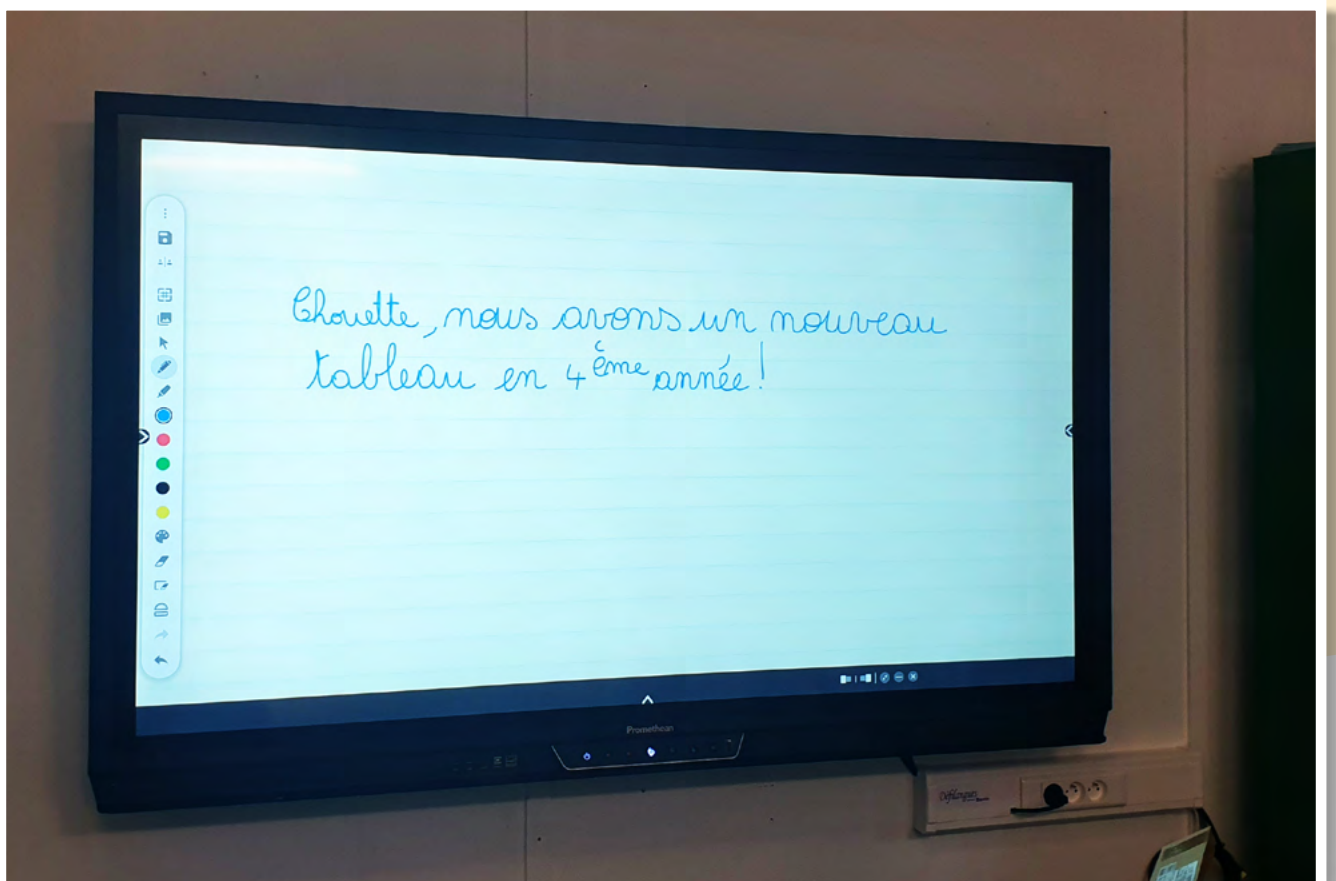 Chouette, nous avons un nouveau
tableau en 4ème année!
Promethean